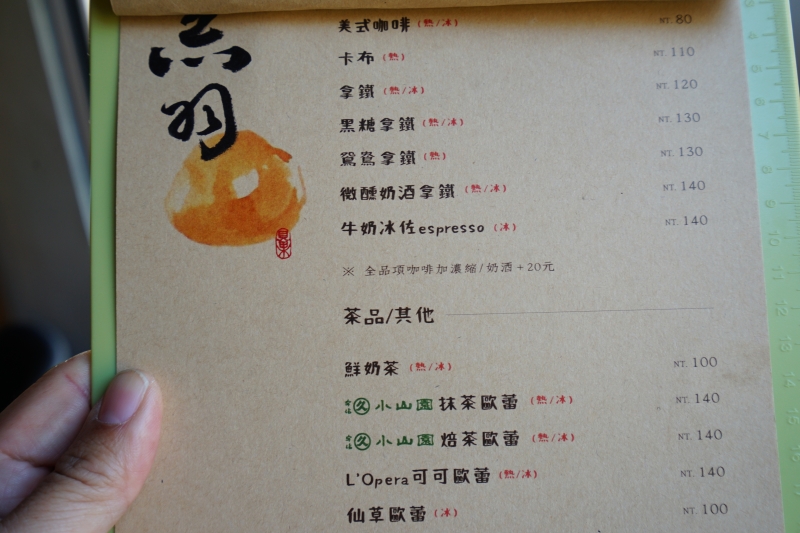 美式咖啡 (熱/冰) NT. 80
卡布 (熱) NT. 110
拿鐵 (熱/冰) NT. 120
黑糖拿鐵 (熱/冰) NT. 130
鴛鴦拿鐵 (熱) NT. 130
微醺奶酒拿鐵 (熱/冰) NT. 140
牛奶冰佐espresso (冰) NT. 140
※ 全品項咖啡加濃縮/奶酒+20元
茶品/其他
鮮奶茶 (熱/冰) NT. 100
久 小山園 抹茶歐蕾 (熱/冰) NT. 140
久 小山園 焙茶歐蕾 (熱/冰) NT. 140
L'Opera可可歐蕾 (熱/冰) NT. 140
仙草歐蕾 (冰) NT. 100